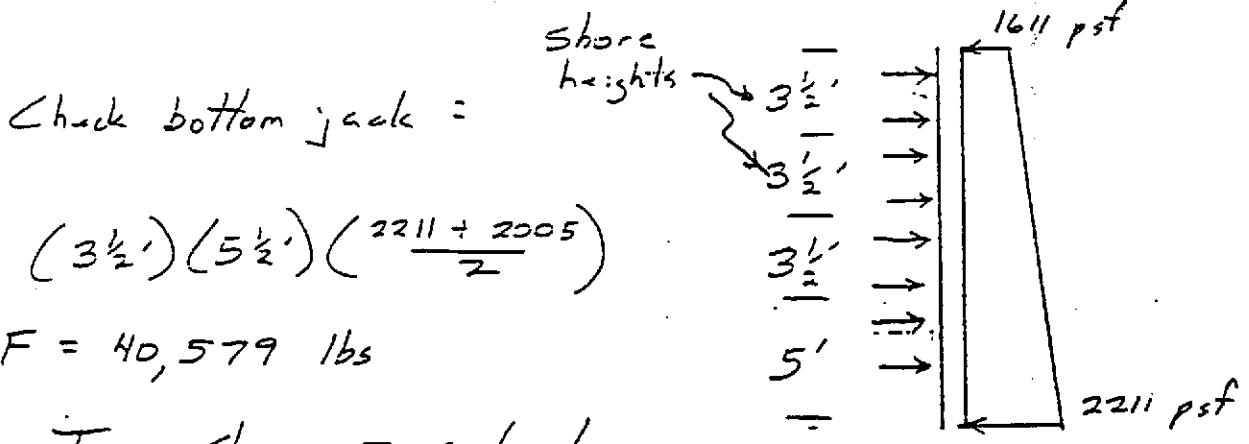 Check bottom jack =
(3 1/2') (5 1/2') ( (2211 + 2005) / 2 )
F = 40,579 lbs
Shore
heights
3 1/2'
3 1/2'
3 1/2'
5'
1611 psf
2211 psf